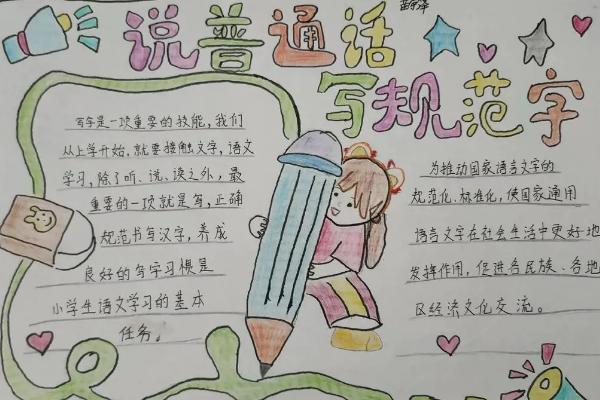 说普通话
写规范字
写字是一项重要的技能，我们
从上学开始，就要接触文字，语文
学习，除了听、说、读之外，最
重要的一项就是写，正确
规范书写汉字，养成
良好的写字习惯是
小学生语文学习的基本
任务。
为推动国家语言文字的
规范化、标准化，使国家通用
语言文字在社会生活中更好地
发挥作用，促进各民族、各地
区经济文化交流。